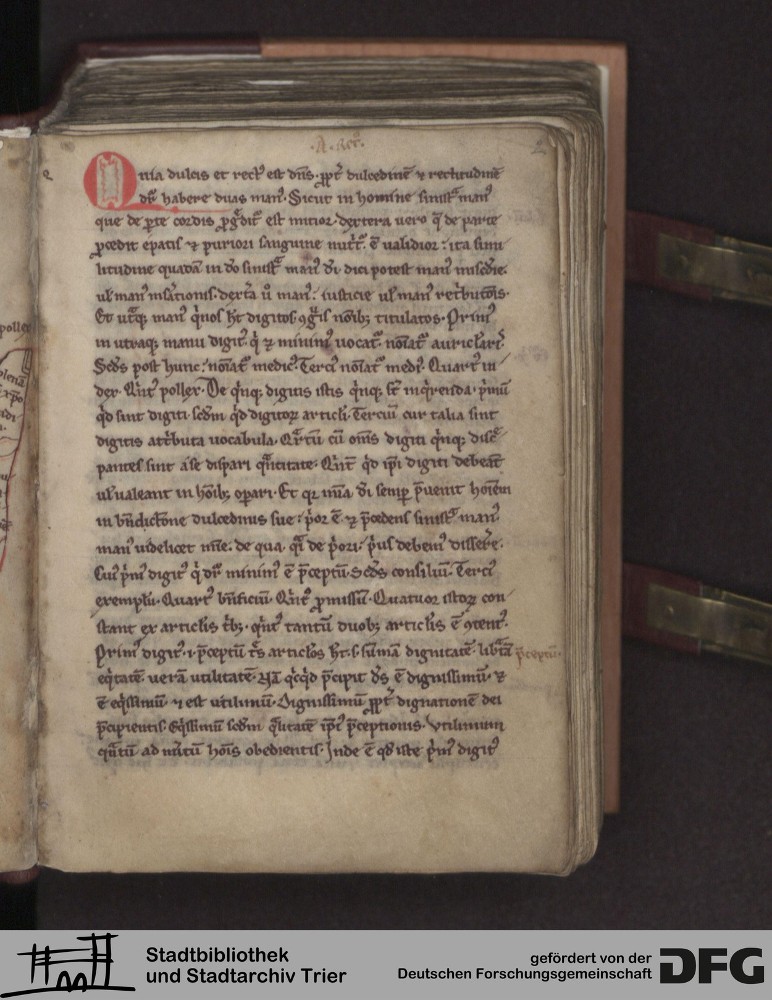 2
Quia dulcis et rect᷒ est dn̄s. ꝓpt̄ dulcedinē ⁊ rectitudinē
dr̄ habere duas man᷒. Sicut in homine sinistᵃ man᷒
que de ꝑte cordis ꝓg̅dit᷑ est mitior. dextera uero q̄ de parte
ꝓcedit epatis ⁊ puriori sanguine nut̄t᷑. ē validior: ita simi
litudine quadā in dō sinistᵃ man᷒ dī dici potest man᷒ mis̄die.
ul̄ man᷒ mis̄ationis. dext̄a ū man᷒: iusticie ul̄ man᷒ ret̄butōis.
Et ut̄qꝫ man᷒ qⁱnos hꝫ digitos. ꝯgͥs noībꝫ titulatos. Prim᷒
in utraqꝫ manu digit᷒. qⁱ ⁊ minim᷒ uocat᷑. noīat᷑ auricl̄ari᷒.
Scd̄s post hunc: noīat᷑ medic᷒. Terci᷒ noīat᷑ medi᷒. Quart᷒ in
dex. Qⁱnt᷒ pollex. De qⁱnqꝫ digitis istis qⁱnqꝫ st̄ inqⁱrenda. pⁱmū
qⁱd sint digiti. scd̄m qⁱd digitoꝝ articl̄i. Terciū cur talia sint
digitis att̄buta uocabula. Qᵃrtū cū om̄s digiti qⁱnqꝫ disc̄
pantes sint a se dispari qᵃntitate. Qⁱnt̄ qⁱd ip̄i digiti debeāt
ul̄ ualeant in hoībꝫ oꝑari. Et qꝛ mīa dī semꝑ p̄uenit hoīem
in bn̄dictōne dulcedinis sue: pⁱor ē ⁊ p̄cedens sinistᵃ man᷒.
man᷒ uidelicet mīe. de qua qᵃsi de pⁱori. pⁱus debem᷒ disser̄e.
Cui᷒ pⁱm᷒ digit᷒ qⁱ dr̄ minim᷒ ē p̄ceptū. Scd̄s consiliū. Terci᷒
exemplū. Quart᷒ bn̄ficiū. Qⁱnt᷒ ꝓmissū. Quatuor istoꝝ con
stant ex articl̄is t̄bꝫ. qⁱnt᷒ tantū duobꝫ articl̄is ē ꝯtent᷒.
Prim᷒ digit᷒. i. p̄ceptū. t̄s articl̄os hꝫ. s. sūmā dignitatē. libᵃtā p̄ceptū.
eqⁱtatē. uerā utilitatē. Nā qⁱcqⁱd p̄cipit d̄s ē dignissimū. ⁊
ē eqⁱssimū. ⁊ est utilimū. Dignissimū ꝓpt̄ dignationē dei
p̄cipientis. Eqⁱssimū scd̄m qᵃlitatē ip̄i᷒ p̄ceptionis. Vtilimum
qᵃntū ad nutū hoīs obedientis. Inde ē qd̄ iste pⁱm᷒ digit᷒
Stadtbibliothek
und Stadtarchiv Trier
gefördert von der
Deutschen Forschungsgemeinschaft
DFG